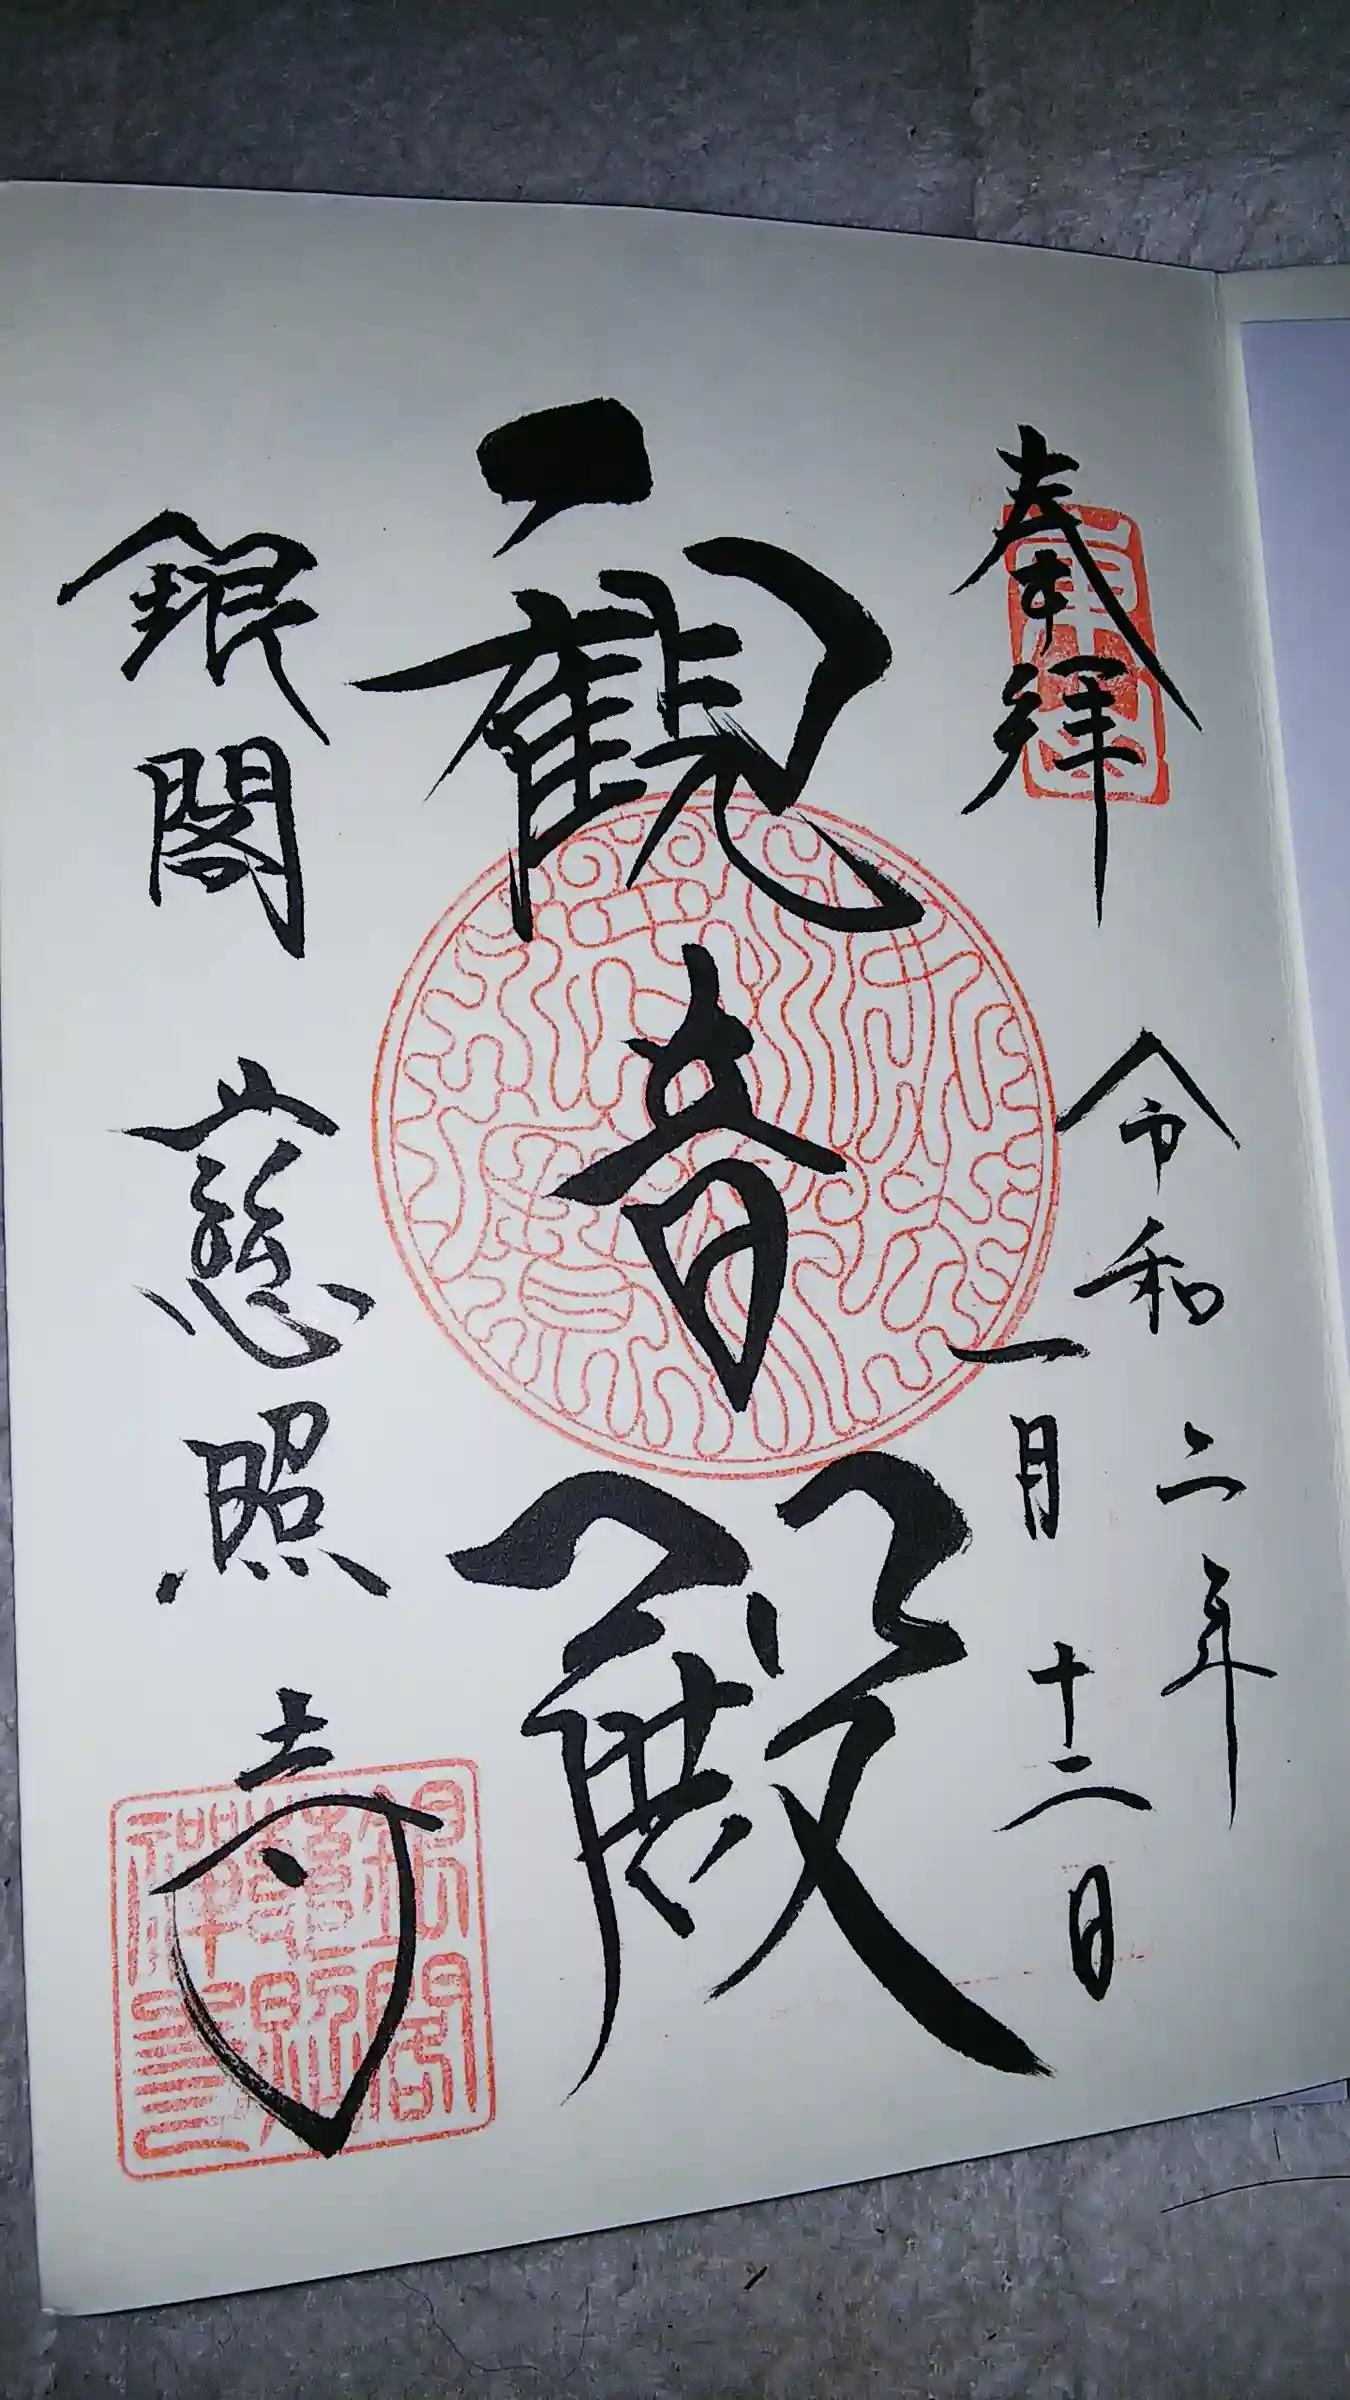 奉拝
令和二年
一月十二日
觀音殿
銀閣 慈照寺
東山
銀閣
慈照
禅寺